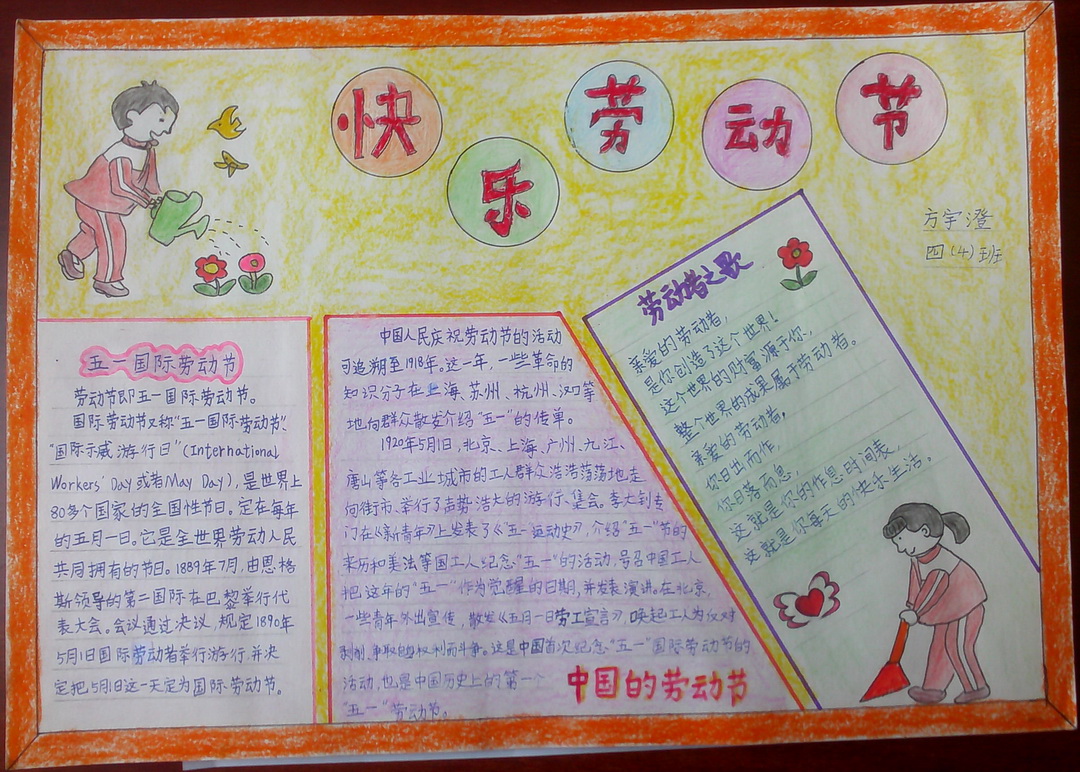 快乐劳动节
方宇澄
四(4)班
五一国际劳动节
劳动节即五一国际劳动节。
国际劳动节又称“五一国际劳动节”、
“国际示威游行日”(International
Workers' Day或者May Day),是世界上
80多个国家的全国性节日。定在每年
的五月一日。它是全世界劳动人民
共同拥有的节日。1889年7月,由恩格
斯领导的第二国际在巴黎举行代
表大会。会议通过决议,规定1890年
5月1日国际劳动者举行游行,并决
定把5月1日这一天定为国际劳动节。
中国人民庆祝劳动节的活动
可追溯至1918年。这一年,一些革命的
知识分子在上海、苏州、杭州、汉口等
地向群众散发介绍“五一”的传单。
1920年5月1日,北京、上海、广州、九江、
唐山等各工业城市的工人群众浩浩荡荡地走
向街市、举行了声势浩大的游行、集会。李大钊专
门在《新青年》上发表了《五一运动史》,介绍“五一”节的
来历和美法等国工人纪念“五一”的活动,号召中国工人
把这年的“五一”作为觉醒的日期,并发表演讲。在北京,
一些青年外出宣传、散发《五月一日劳工宣言》,唤起工人为反对
剥削、争取自己权利而斗争。这是中国首次纪念“五一”国际劳动节的
活动,也是中国历史上的第一个
“五一”劳动节。
中国的劳动节
劳动者之歌
亲爱的劳动者,
是你创造了这个世界!
这个世界的财富源于你,
整个世界的成果属于劳动者。
亲爱的劳动者,
你日出而作,
你日落而息,
这就是你的作息时间表,
这就是你每天的快乐生活。